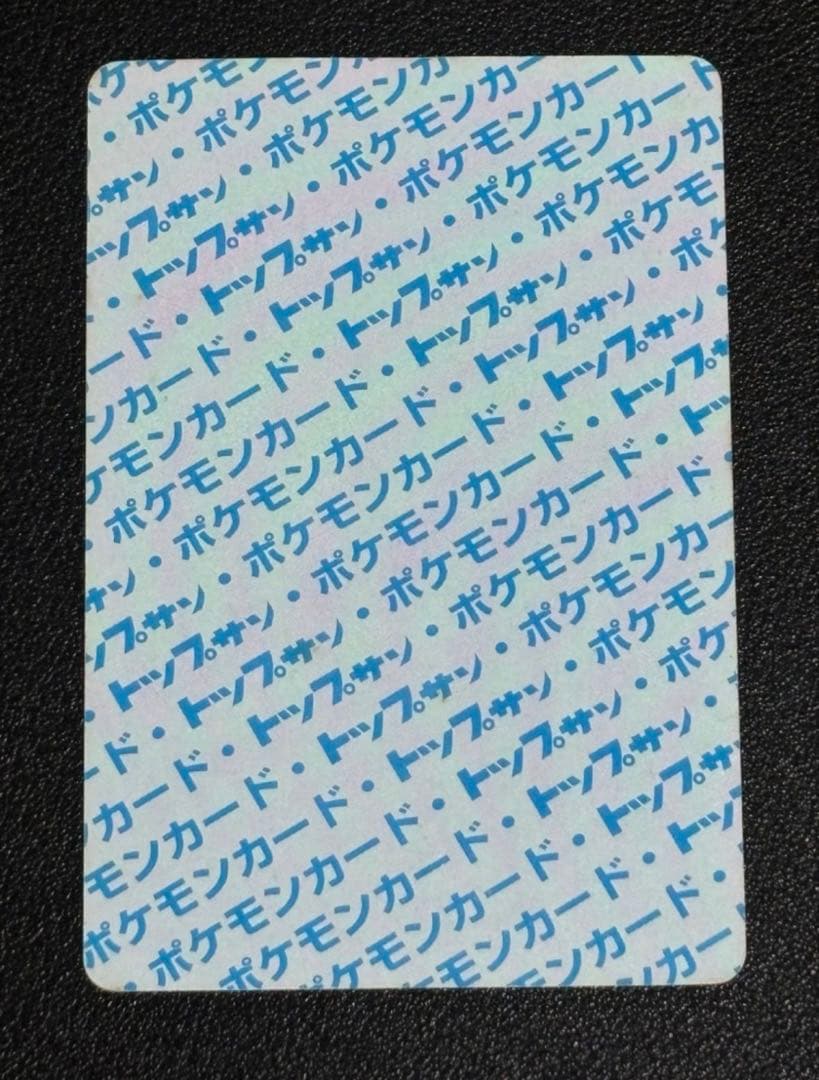 ポケモ
・ポケモン
プサン・ポケモンカ
トップサン・ポケモンカ
・トップサン・ポケモンカー
ード・トップサン・ポケモンカード
ンカード・トップサン・ポケモンカ
ケモンカード・トップサン・ポケモ
・ポケモンカード・トップサン・ポケ
サン・ポケモンカード・トップサン・
ップサン・ポケモンカード・トップサ
トップサン・ポケモンカード・トッ
・トップサン・ポケモンカード・
ード・トップサン・ポケモンカー
カード・トップサン・ポケモン
モンカード・トップサン・ポケ
ポケモンカード・トップサン・
・ポケモンカード・トップサ
ポケモンカード・トッ
ケモンカード・
ンカー